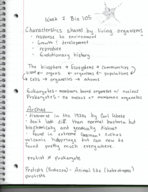 Week 2 Bio 105
Characteristics shared by living organisms
- response to environment
- Growth / development
- reproduce
- Evolutionary history
The biosphere & Ecosystems & communities
organisms populations
cells organelles atoms
Eukaryotes - membrane bound organelles w/ nucleus
Prokaryotes - no nucleus or membrane organelles
Archaea
- Discovered in the 1970s by Carl Woese
- don't look diff. than normal bacteria but
biochemically and genetically distinct
- found in extreme
volcanic habitats but can now be
found pretty much everywhere.
protist ≠ Prokaryote
Protists (Protozoa) - Animal like (characteristics)
protists